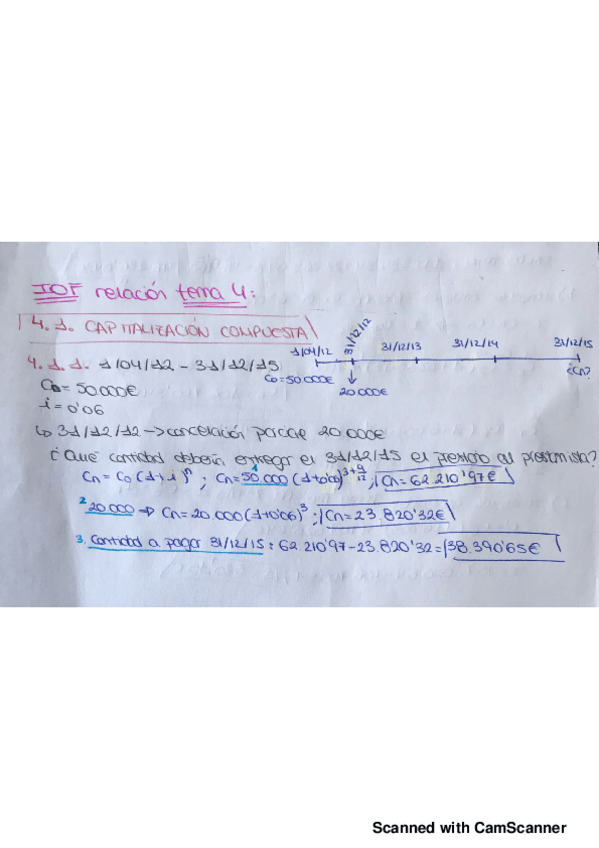 IOF relación tema 4:
4.1. CAPITALIZACIÓN COMPUESTA
1/04/12 31/12/12 31/12/13 31/12/14 31/12/15
C0=50000€ 20000€ ¿Cn?
4.1.1. 1/04/12 - 31/12/15
C0= 50000€
i = 0'06
↳ 31/12/12 → cancelación parcial 20000€
¿Qué cantidad deberá entregar el 31/12/15 el prestatario al prestamista?
Cn = C0 (1+i)^n ; 1 Cn=50000 (1+0'06)^3+9/12 ; Cn=62210'97€
2 20.000 ⇒ Cn=20.000(1+0'06)^3 ; Cn=23.820'32€
3. Cantidad a pagar 31/12/15 : 62210'97-23.820'32= 38.390'65€
Scanned with CamScanner